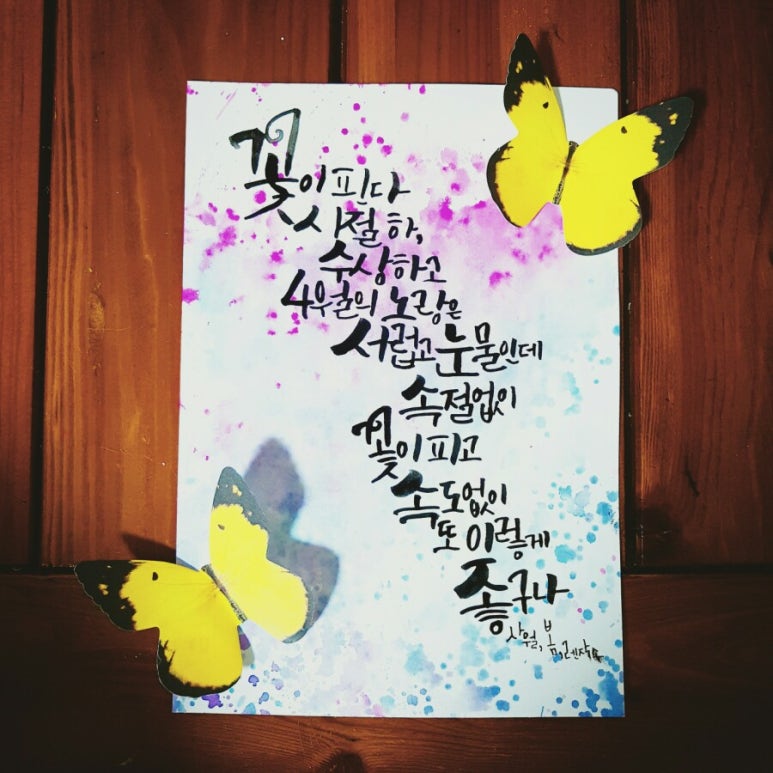 꽃이 핀다
시절 하,
수상하고
4월의 노랑은
서럽고 눈물인데
속절없이
꽃이 피고
속도없이
또 이렇게
좋구나
사월, 봄,